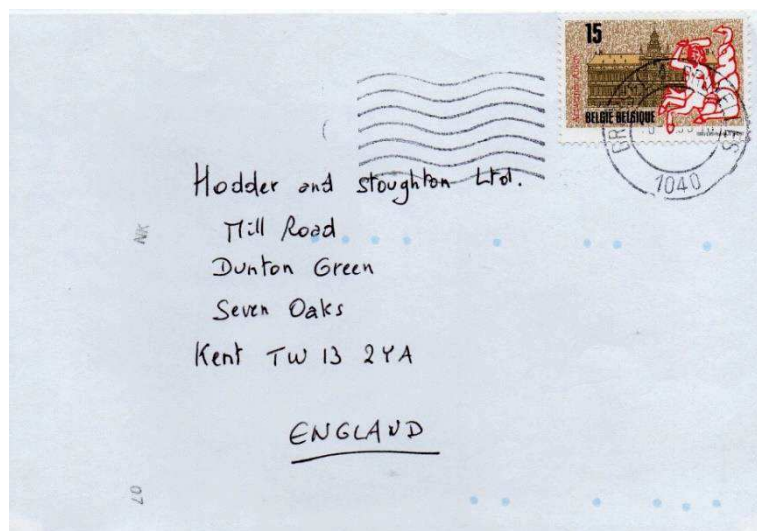 15
BELGIE BELGIQUE
1040
Hodder and Stoughton Ltd.
Mill Road
Dunton Green
Seven Oaks
Kent TW 13 2YA
ENGLAND
NK
07